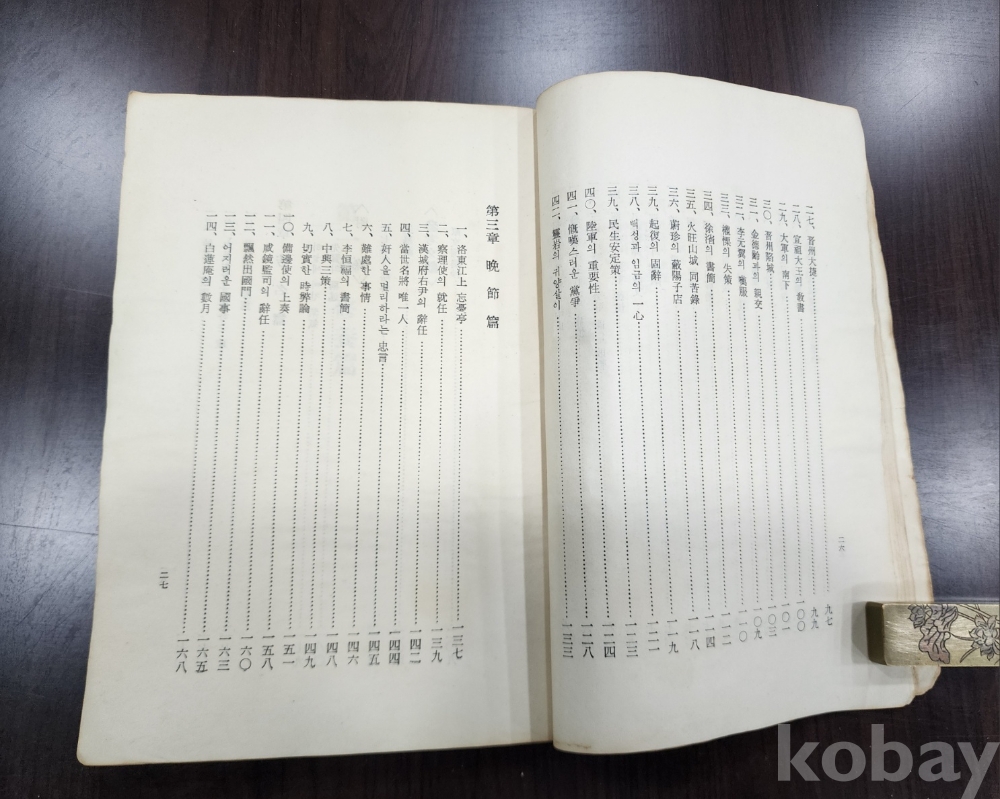 二七、晋州大捷……九七
二八、宣祖大王의 敎書……九九
二九、大軍의 南下……一〇〇
三〇、晋州落城……一〇一
三一、金德齡과의 親交……一〇三
三二、李元翼의 嘆服……一〇九
三三、權慄의 失策……一一〇
三四、徐渻의 書簡……一一二
三五、火旺山城 同苦錄……一一四
三六、蔚珍의 蔽陽子店……一一八
三九、起復의 固辭……一一九
三八、백성과 임금의 一心……一二一
三九、民生安定策……一二三
四〇、陸軍의 重要性……一二四
四一、慨嘆스러운 黨爭……一二八
四二、靈岩의 귀양살이……一三三
二六
第三章 晩節篇
一、洛東江上 忘憂亭……一三七
二、察理使의 就任……一三九
三、漢城府右尹의 辭任……一四二
四、當世名將 唯一人……一四四
五、奸人을 멀리하라는 忠言……一四五
六、難處한 事情……一四六
七、李恒福의 書簡……一四八
八、中興三策……一四九
九、切實한 時弊論……一五一
一〇、備邊使의 上奏……一五八
一一、咸鏡監司의 辭任……一六〇
一二、飄然出國門……一六三
一三、어지러운 國事……一六五
一四、白蓮庵의 數月……一六八
二七
kobay